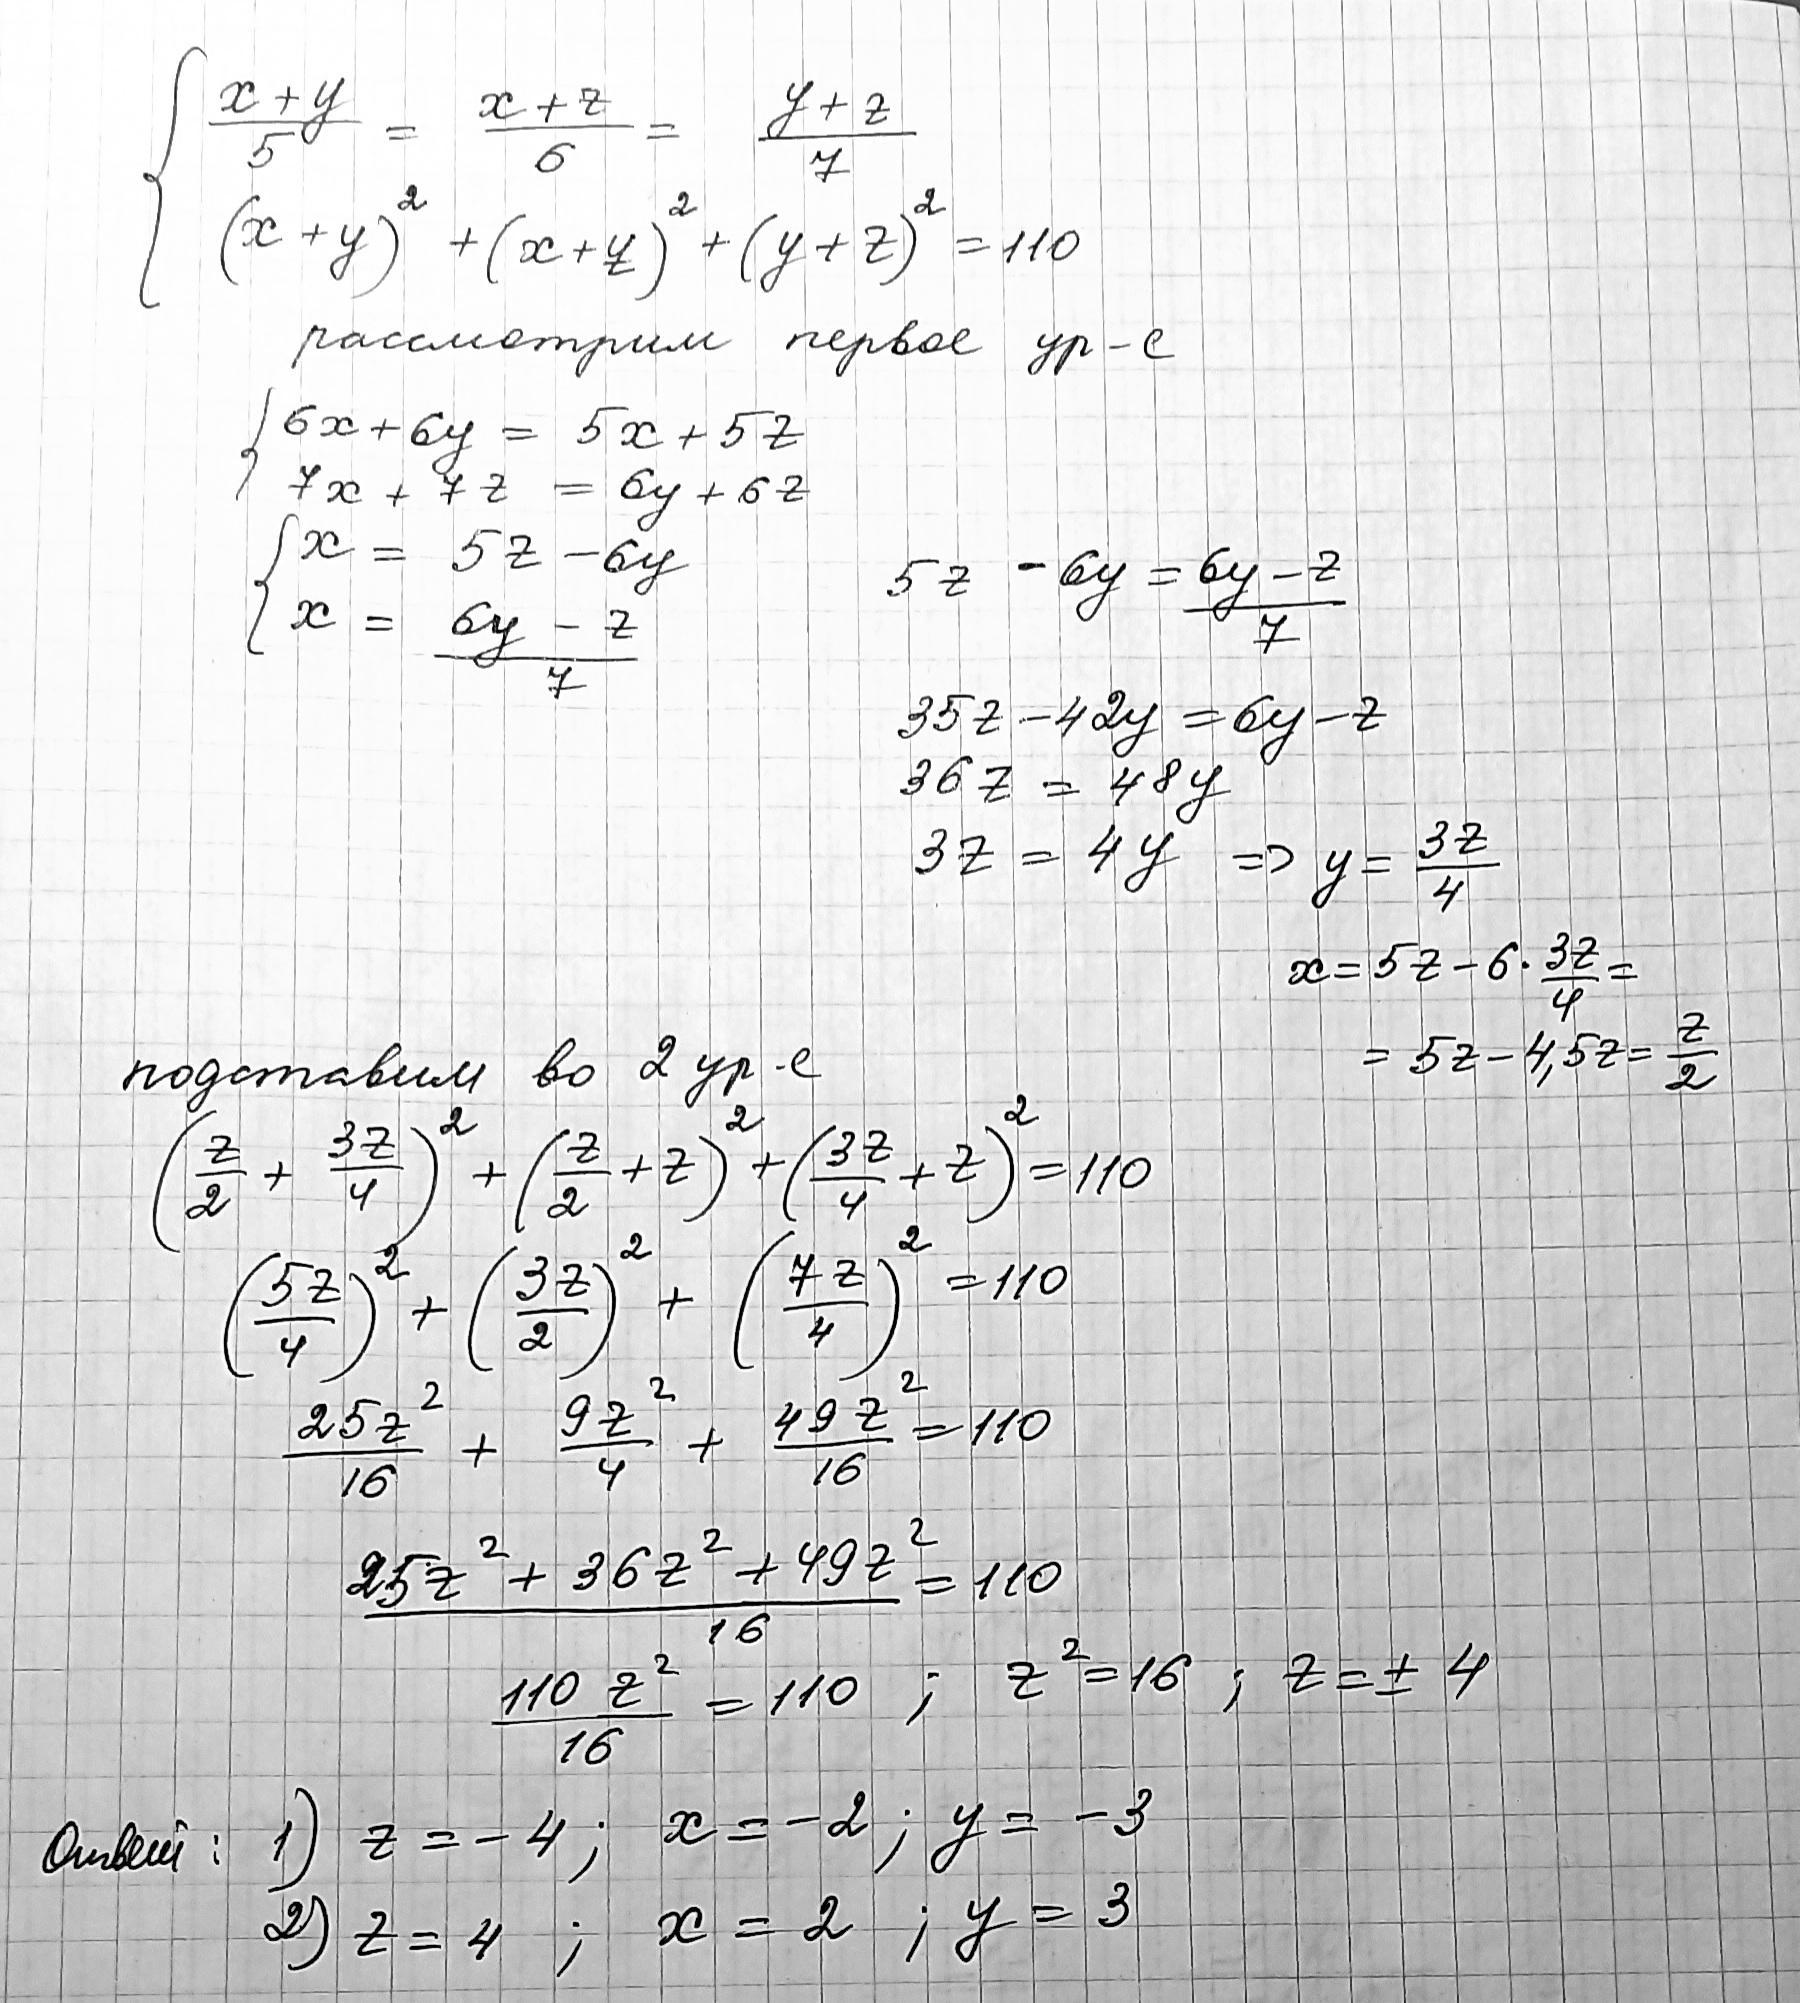 { (x+y)/5 = (x+z)/6 = (y+z)/7
(x+y)² + (x+z)² + (y+z)² = 110
рассмотрим первое ур-е
{ 6x + 6y = 5x + 5z
7x + 7z = 6y + 6z
{ x = 5z - 6y
x = (6y - z)/7
5z - 6y = (6y - z)/7
35z - 42y = 6y - z
36z = 48y
3z = 4y => y = 3z/4
x = 5z - 6 · 3z/4 =
= 5z - 4,5z = z/2
подставим во 2 ур-е
(z/2 + 3z/4)² + (z/2 + z)² + (3z/4 + z)² = 110
(5z/4)² + (3z/2)² + (7z/4)² = 110
25z²/16 + 9z²/4 + 49z²/16 = 110
(25z² + 36z² + 49z²)/16 = 110
110 z²/16 = 110 ; z² = 16 ; z = ± 4
Ответ: 1) z = -4 ; x = -2 ; y = -3
2) z = 4 ; x = 2 ; y = 3